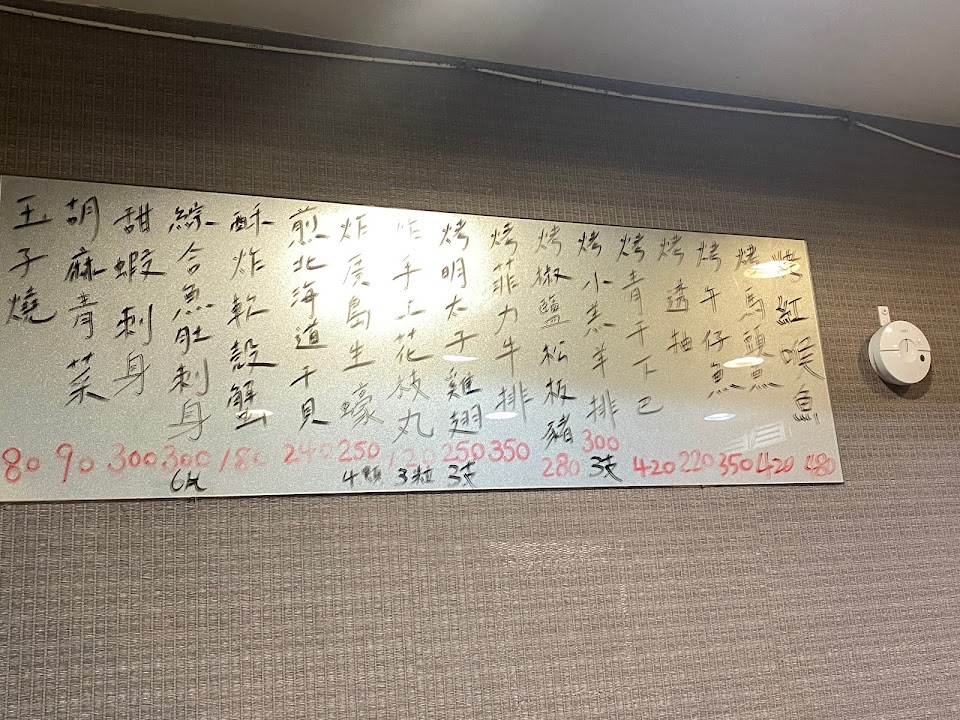 烤紅喉魚 480
烤馬頭魚 420
烤午仔魚 350
烤透抽 220
烤青干下巴 420
烤小羔羊排 300 3支
烤椒鹽松板豬 280
烤菲力牛排 350
烤明太子雞翅 250 3支
炸手工花枝丸 120 3粒
炸廣島生蠔 250 4顆
煎北海道干貝 240
酥炸軟殼蟹 180
綜合魚肚刺身 300 6片
甜蝦刺身 300
胡麻青菜 90
玉子燒 80